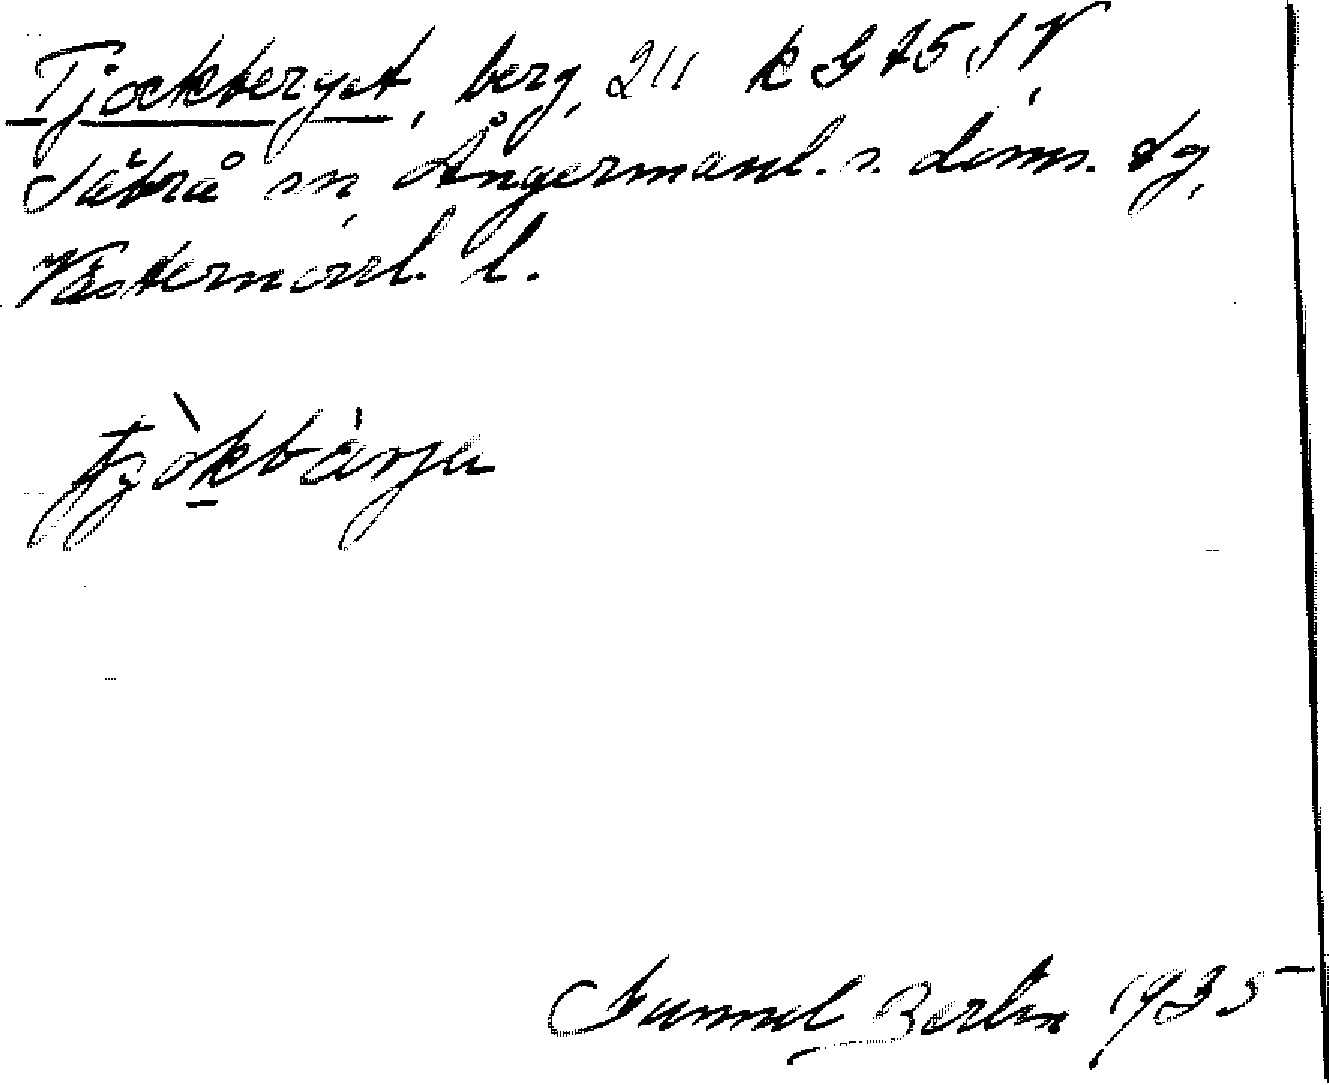 Tjockberget, berg, 211 k GA5SV,
Säbrå sn, Ångermanl. s. doms. tg,
Västernorrl. l.
tjòkbárja
Gunnel Berlin 1935